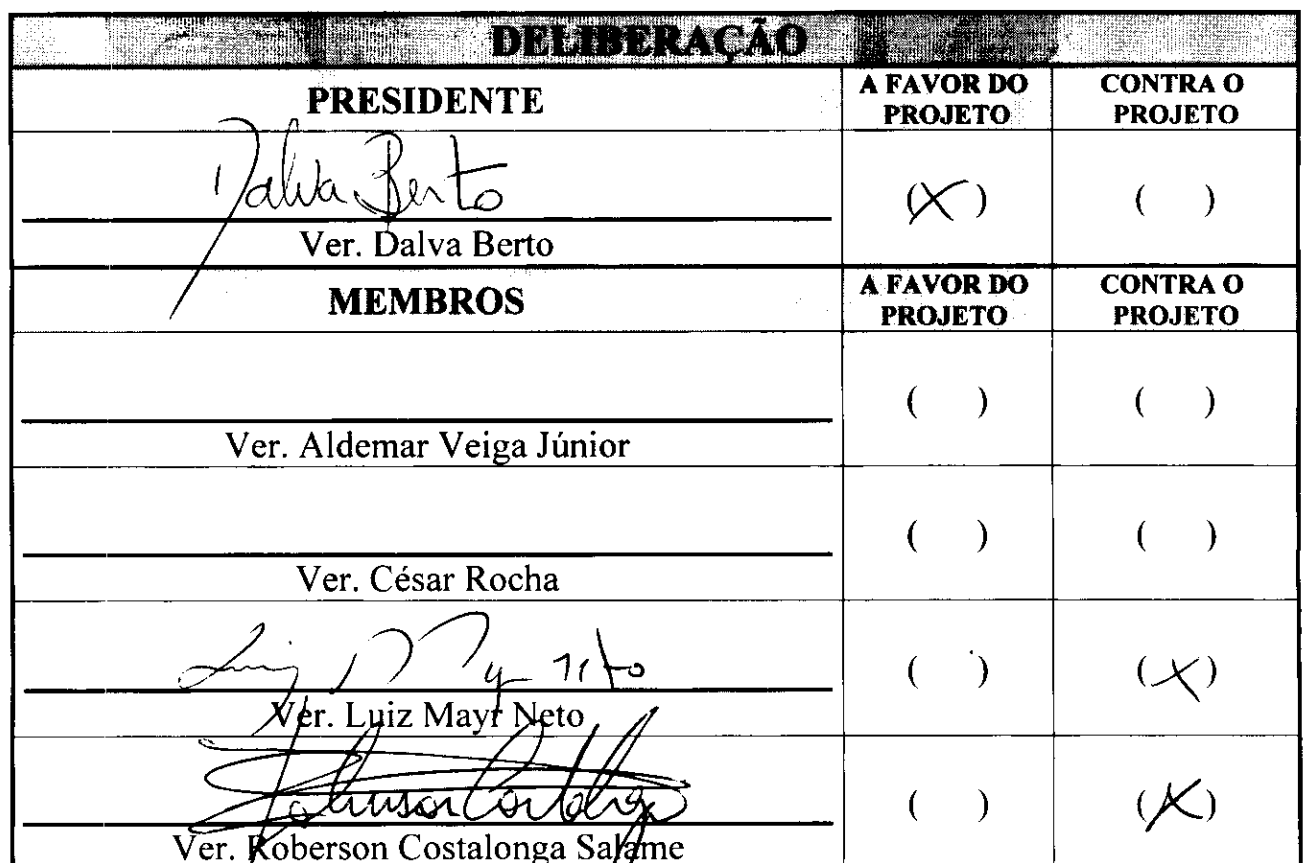 DELIBERAÇÃO
PRESIDENTE
A FAVOR DO PROJETO
CONTRA O PROJETO
Dalva Berto
(X) ( )
Ver. Dalva Berto
MEMBROS
A FAVOR DO PROJETO
CONTRA O PROJETO
( ) ( )
Ver. Aldemar Veiga Júnior
( ) ( )
Ver. César Rocha
( ) (X)
Ver. Luiz Mayr Neto
( ) (X)
Ver. Roberson Costalonga Salame